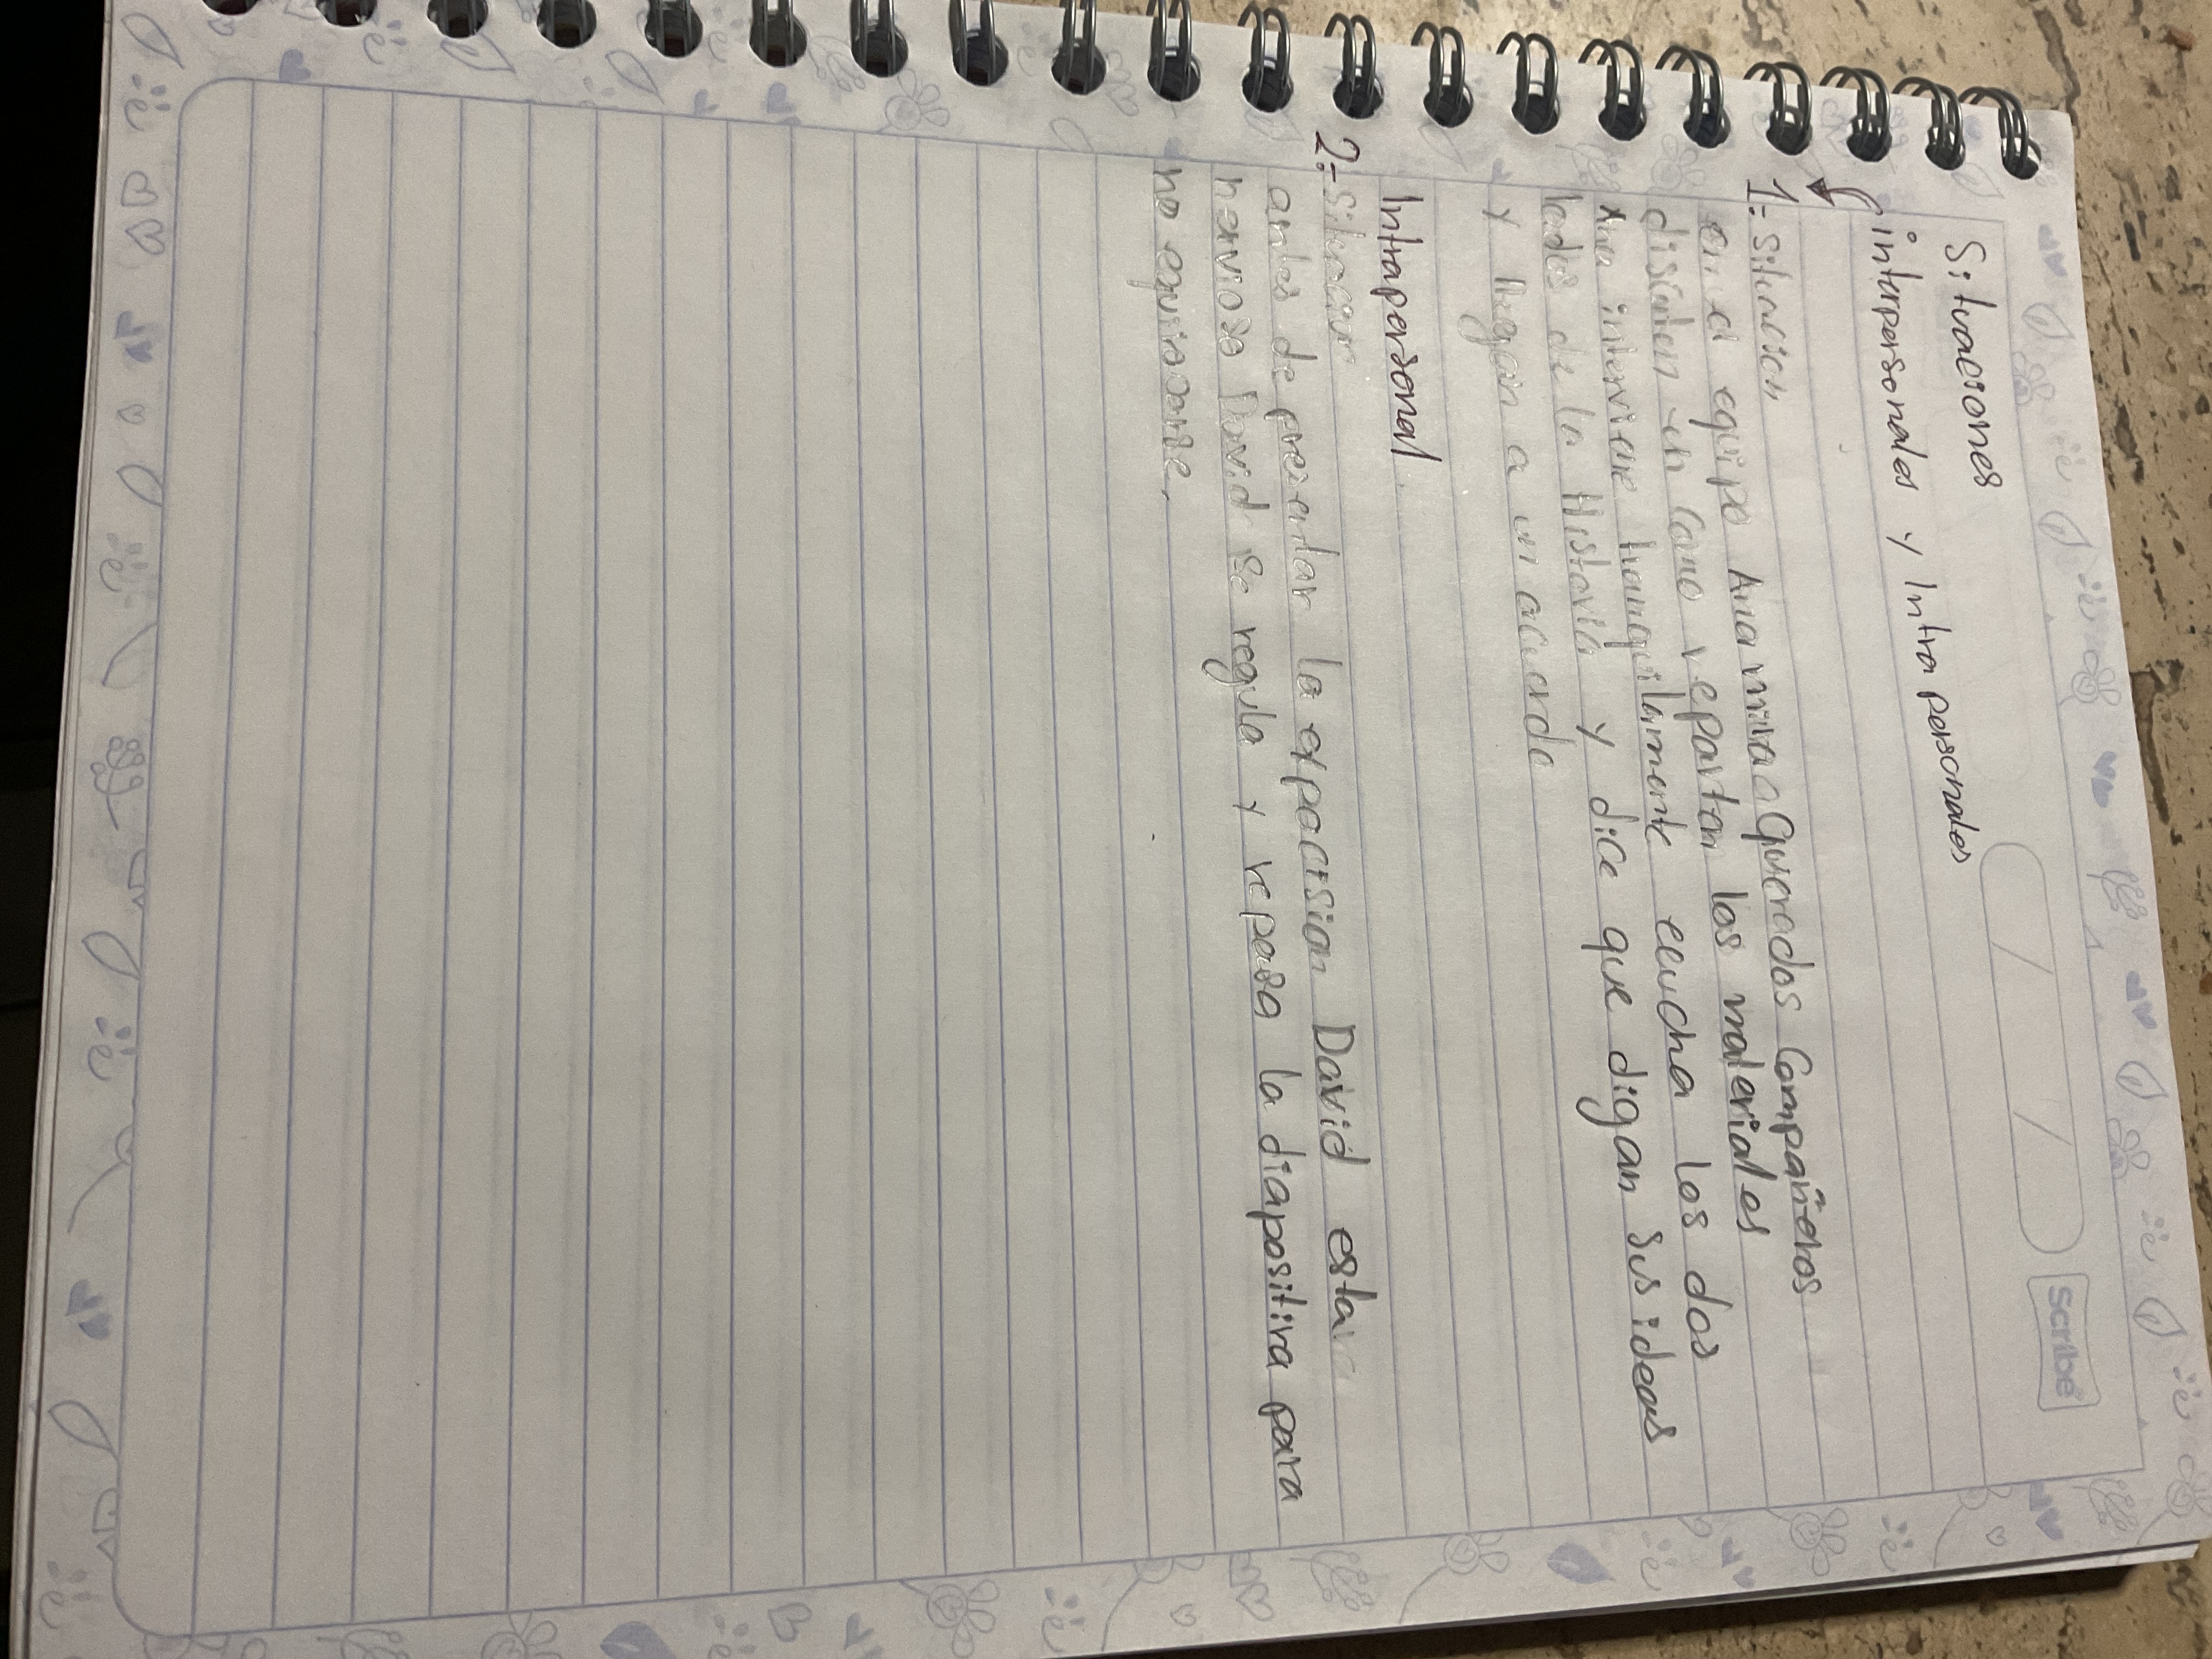 scribe
Situaciones
interpersonales y Intra personales
1: Situacion
en el equipo Ana mira a Queredos Compañeros
discuten en como repartan los materiales
Ana interviene tranquilamente eccucha los dos
lados de la Historia y dice que digan sus ideas
y llegan a un acuerdo
Intrapersonal.
2: Situacion
antes de presentar la exposision David esta
nervioso David se regula y repasa la diapositiva para
no equivocarse.